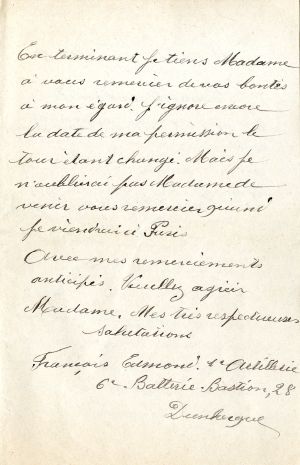 En terminant je tiens Madame
à vous remercier de vos bontés
à mon égard. J'ignore encore
la date de ma permission le
tour étant changé. Mais je
n'oublierai pas Madame de
venir vous remercier quand
je viendrai à Paris
Avec mes remerciements
anticipés. Veuillez agréer
Madame. Mes très respectueuses
salutations
François Edmond. 1e Artillerie
6e Batterie. Bastion, 28
Dunkerque